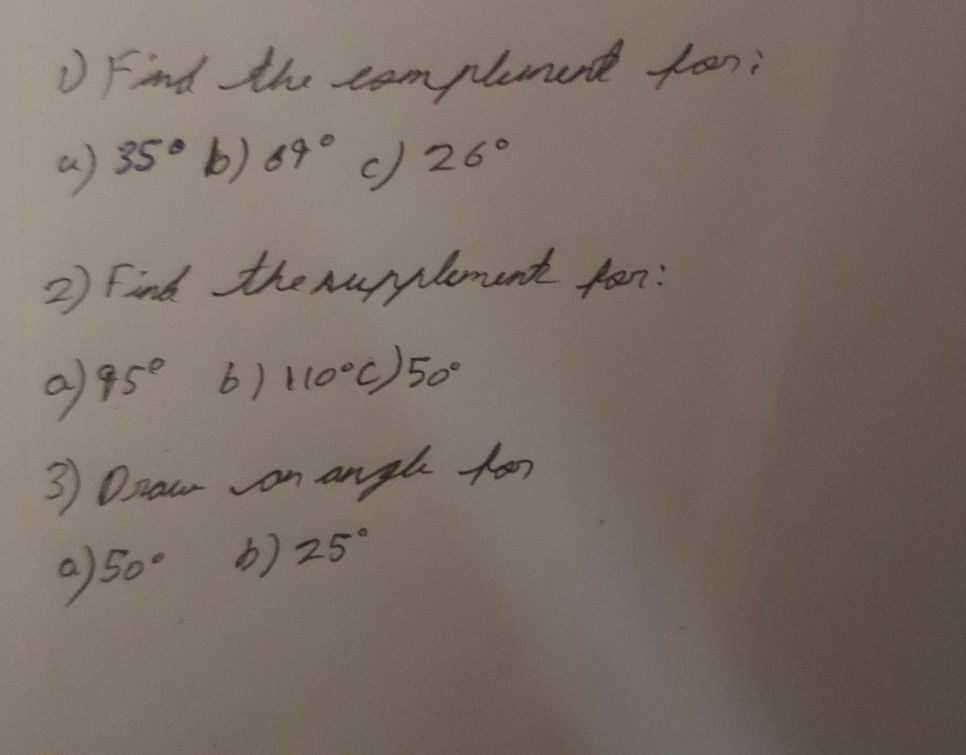 1) Find the complement for:
a) 35° b) 69° c) 26°
2) Find the supplement for:
a) 95° b) 110° c) 50°
3) Draw an angle for
a) 50° b) 25°